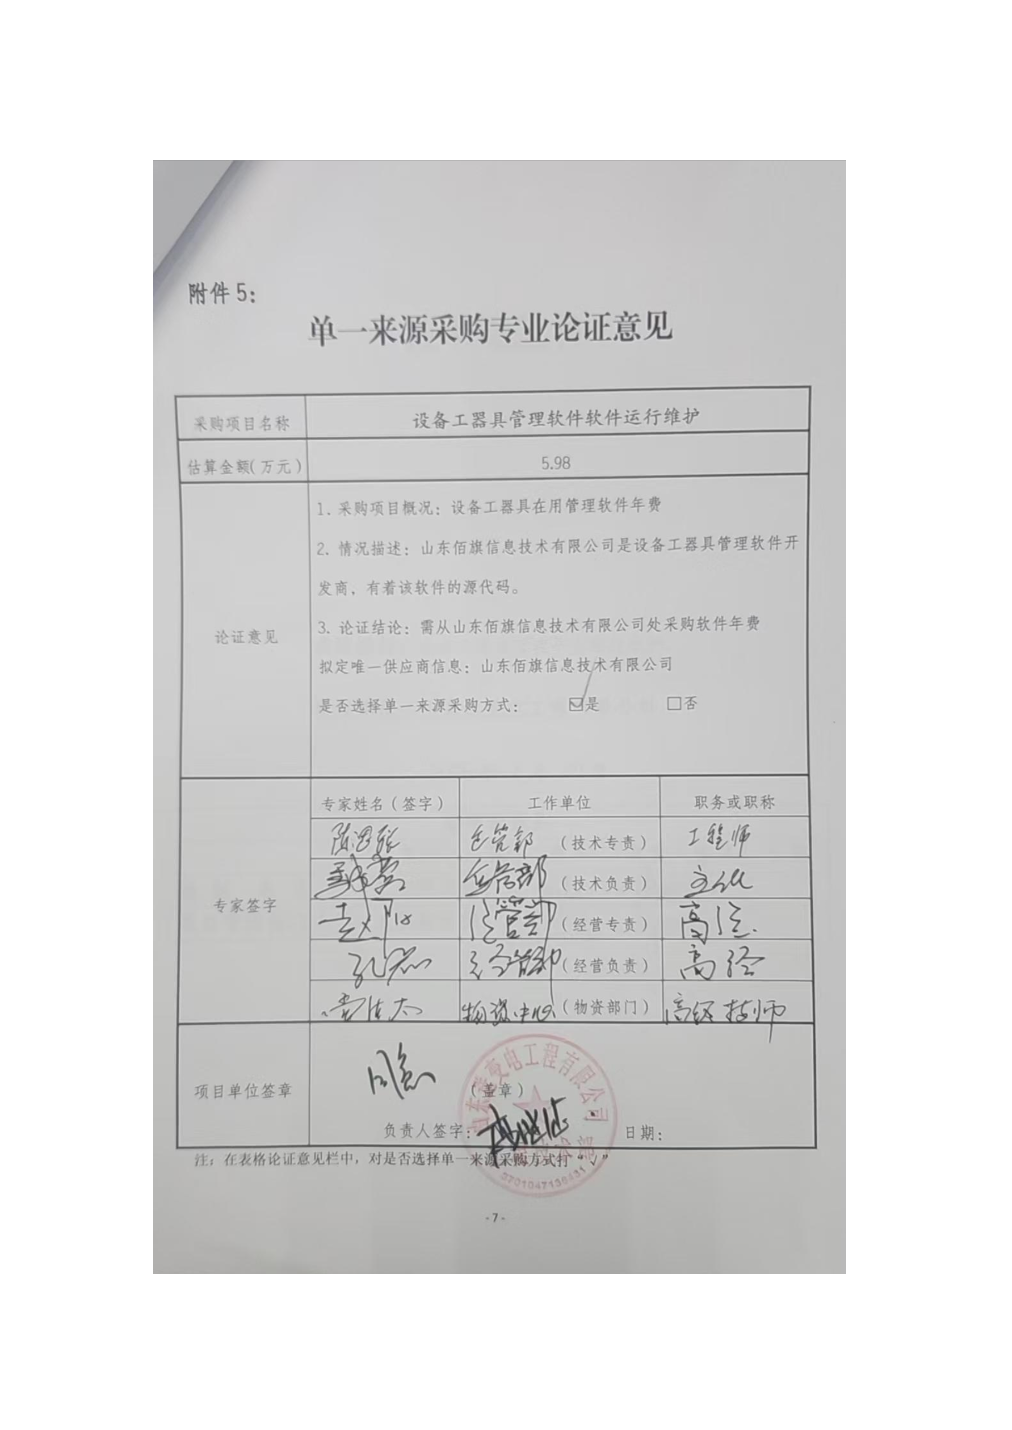 附件 5：
单一来源采购专业论证意见
采购项目名称 设备工器具管理软件软件运行维护
估算金额（万元） 5.98
论证意见
1. 采购项目概况：设备工器具在用管理软件年费
2. 情况描述：山东佰旗信息技术有限公司是设备工器具管理软件开
发商，有着该软件的源代码。
3. 论证结论：需从山东佰旗信息技术有限公司处采购软件年费
拟定唯一供应商信息：山东佰旗信息技术有限公司
是否选择单一来源采购方式： ☑是 □否
专家签字
专家姓名（签字） 工作单位 职务或职称
（技术专责） 工程师
（技术负责）
（经营专责）
（经营负责） 高经
物资中心（物资部门） 高级技师
项目单位签章
同意
（盖章）
负责人签字： 日期：
注：在表格论证意见栏中，对是否选择单一来源采购方式打“√”
3701047136431
- 7 -